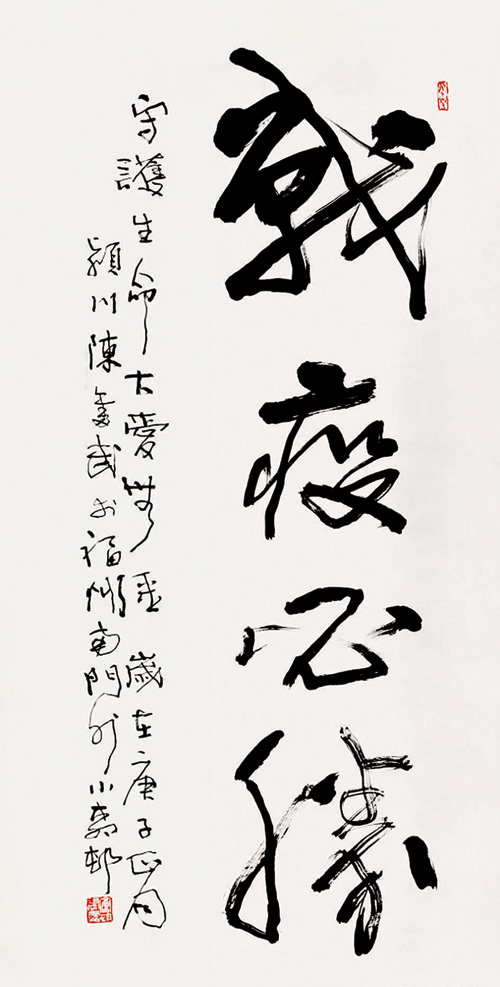 戰疫必勝
守護生命大愛無 歲在庚子正月
潁川陳奮武於福州南門外小 邨